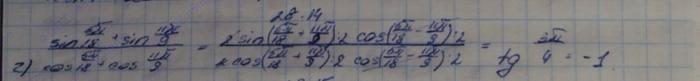 28.14
2) (sin 5π/18 + sin 11π/9)/(cos 5π/18 + cos 11π/9) = (2 sin(5π/18 + 11π/9):2 cos(5π/18 - 11π/9):2)/(2 cos(5π/18 + 11π/9):2 cos(5π/18 - 11π/9):2) = tg 3π/4 = -1